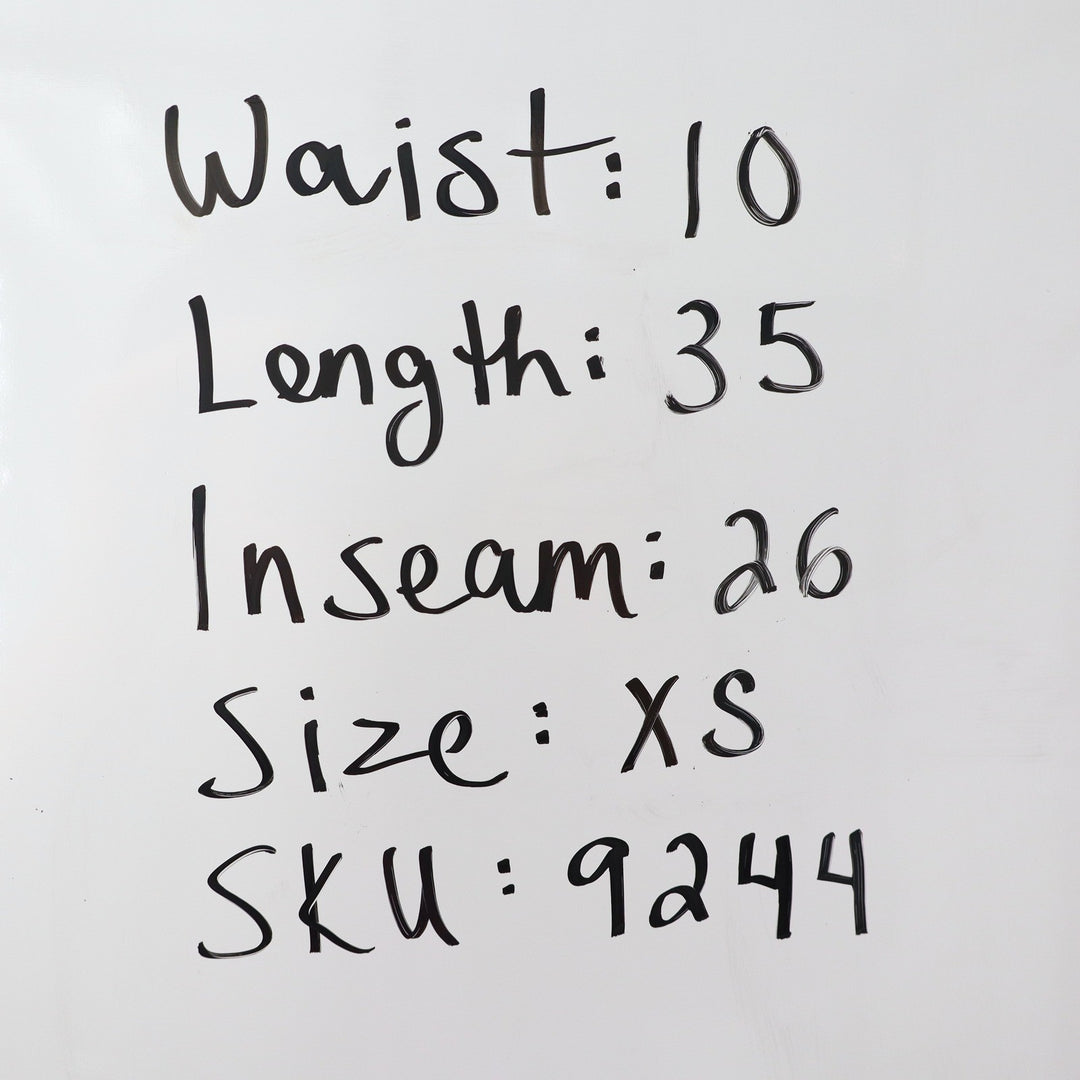 Waist: 10
Length: 35
Inseam: 26
Size: XS
SKU: 9244